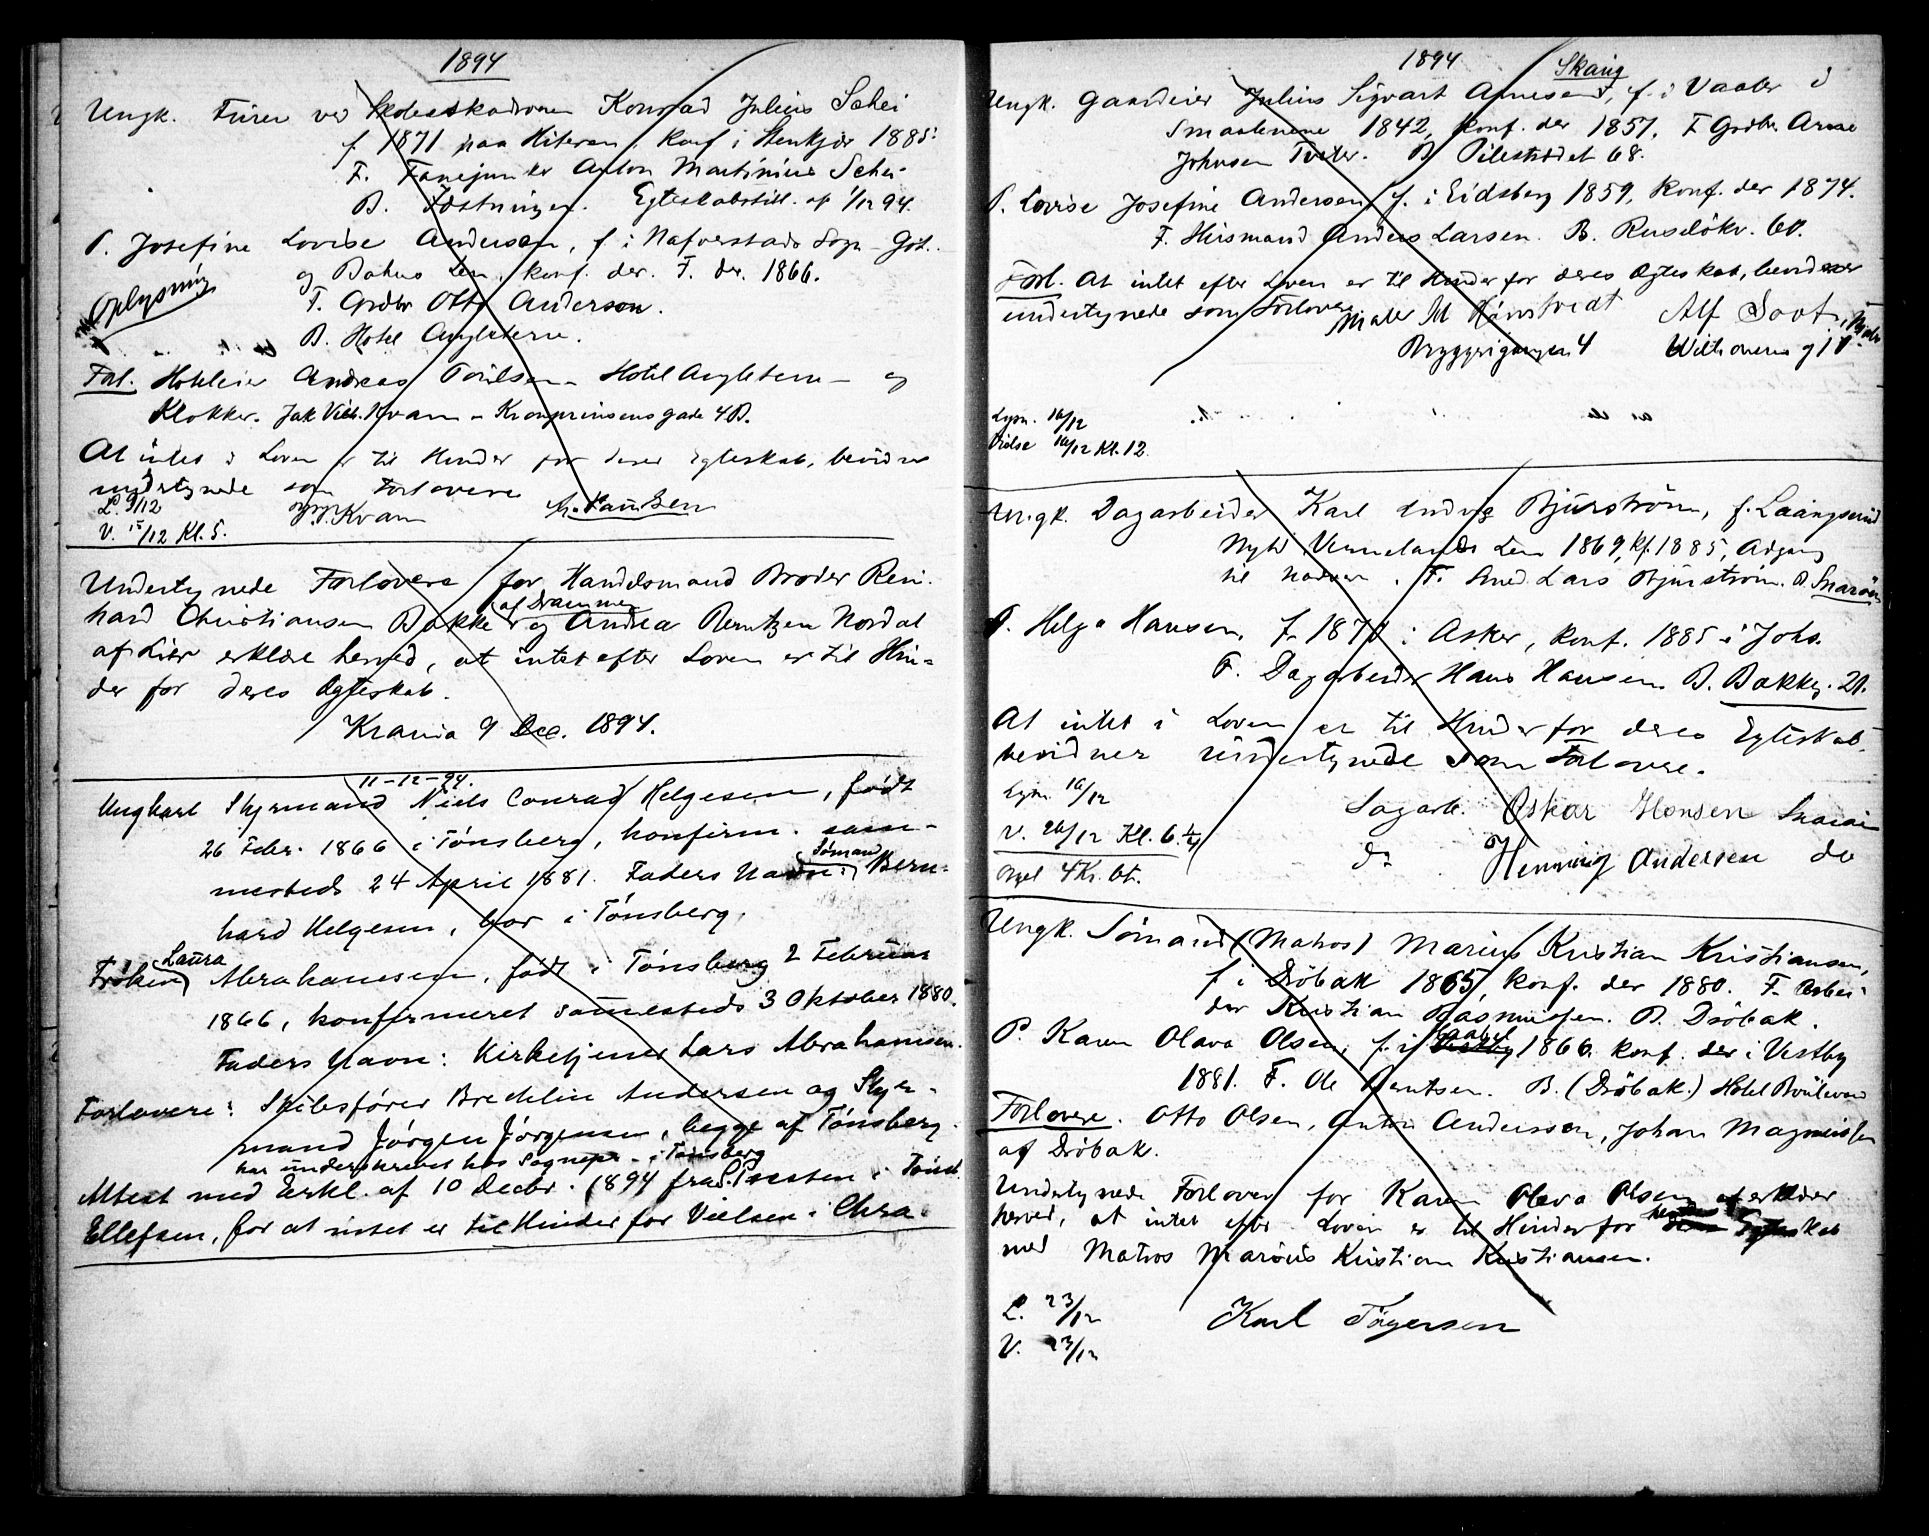 1894
Ungk. Furer ved Skoleeskadronen Konrad Julius Schei
f. 1871 paa Hiteren, konf. i Stenkjær 1885.
F. Fanejunker Anton Martinius Schei
B. Fæstningen. Egteskabstill. af 1/12 94.
P. Josefine Lovise Andersen, f. i Nafverstads Sogn Göt.
og Bohus Len, konf. der. F. der. 1866.
Oplysning
F. Grdbr Otto Anderson.
B. Hotel Angleterre.
Forl. Hoteleier Andreas Poulsen - Hotel Angleterre - og
Klokker. Jak Vilh. Kvam - Kronprinsensgade 4 B.
At intet i Loven er til Hinder for deres Egteskab, bevidner
undertegnede som Forlovere
L. 9/12
V. 15/12 Kl. 5.
Kvam A. Paulsen
Undertegnede Forlovere for Handelsmand Broder Rein-
hard Christiansen Bakke af Drammen og Andrea Berntzen Nordal
af Lier erklære herved, at intet efter Loven er til Hin-
der for deres Ægteskab.
Krania 9 Dec. 1894.
11-12-94.
Ungkarl Styrmand Niels Conrad Helgesen, født
26 Febr. 1866 i Tønsberg, konfirm. sam-
mesteds 24 April 1881. Faders Navn: Sømand Bern-
hard Helgesen, bor i Tønsberg.
Frøken Laura Abrahamsen, født i Tønsberg 2 Februar
1866, konfirmeret sammesteds 3 Oktober 1880.
Faders Navn: Kirketjener Lars Abrahamsen.
Forlovere: Skibsfører Andersen og Styr-
mand Jørgen Jørgensen, begge af Tønsberg.
har underskrevet hos Sognepr. i Tønsberg
Attest med Erkl. af 10 Decbr. 1894 fra S.Presten i Tønsb.
Ellefsen, for at intet er til Hinder for Vielsen i Chra.
1894
Skaug
Ungk. Gaardeier Julius Sigvart Arnesen, f. i Vaaler i
Smaalenene 1842, konf. der 1857. F. Grdbr. Arne
Johnsen Tveter. B. Pilestrædet 68.
P. Lovise Josefine Andersen, f. i Eidsberg 1859, konf. der 1874.
F. Husmand Anders Larsen. B. Ruseløkv. 60.
Forl. At intet efter Loven er til Hinder for deres Ægteskab, bevidner
undertegnede som Forlovere
Maler M Alf Soot
Bryggerigangen 4
Lysn. 16/12
Vielse 16/12 Kl. 12.
Ungk. Dagarbeider Karl Ludvig Bjurstrøm, f. Laangserud
Nyed Vermelands Len 1869, kf. 1885, Adgang
til Nadver. F. Smed Lars Bjurstrøm. B. Snarøen
P. Helga Hansen, f. 1870 i Asker, konf. 1885 i Johs.
F. Dagarbeider Hans Hansen. B. Bakkeg. 21.
At intet i Loven er til Hinder for deres Egteskab,
bevidner undertegnede som Forlovere.
Lysn. 16/12
V. 26/12 Kl. 6 1/4
Orgel 4 Kr. bt.
Dagarb. Oskar Hansen Snarøen
do Henning Andersen do
Ungk. Sømand (Matros) Marius Kristian Kristiansen,
f. i Drøbak 1865, konf. der 1880. F. Arbei-
der Kristian Rasmussen. B. Drøbak.
P. Karen Olava Olsen, f. i Vestby 1866. konf. der i Vestby
1881. F. Ole Berntsen. B. (Drøbak.) Hotel Boulevard
Forlovere. Otto Olsen, Anton Anderssen, Johan Magnussen
af Drøbak.
Undertegnede Forlover for Karen Olava Olsen erklærer
herved, at intet efter Loven er til Hinder for hendes Egteskab
med Matros Marius Kristian Kristiansen.
L. 23/12
V. 23/12
Karl Tøgersen